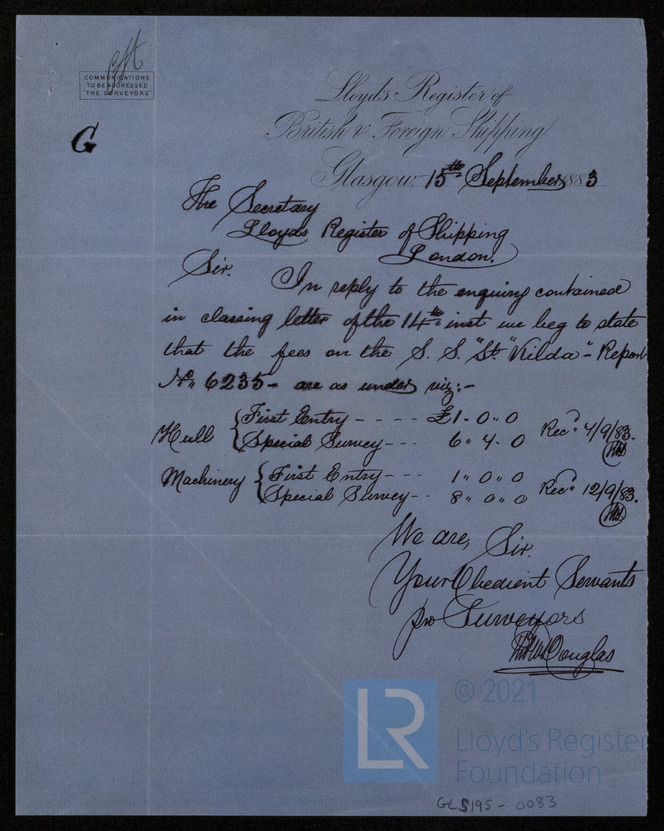 COMMUNICATIONS
TO BE ADDRESSED
"THE SURVEYORS"
G
Lloyds Register of
British & Foreign Shipping
Glasgow. 15th September 1883
The Secretary
Lloyds Register of Shipping
London.
Sir.
In reply to the enquiry contained
in classing letter of the 14th inst we beg to state
that the fees on the S. S. "St Kilda" - Report
No. 6235 - are as under viz:-
Hull { First Entry - - - - £1 . 0 .. 0
Special Survey - - - 6 .. 4 . 0 Recd 4/9/83.
Machinery { First Entry - - - 1 .. 0 .. 0
Special Survey - - 8 .. 0 .. 0 Recd 12/9/83.
We are, Sir.
Your Obedient Servants
pro Surveyors
Douglas
LR © 2021
Lloyd's Register
Foundation
GLS195 - 0083